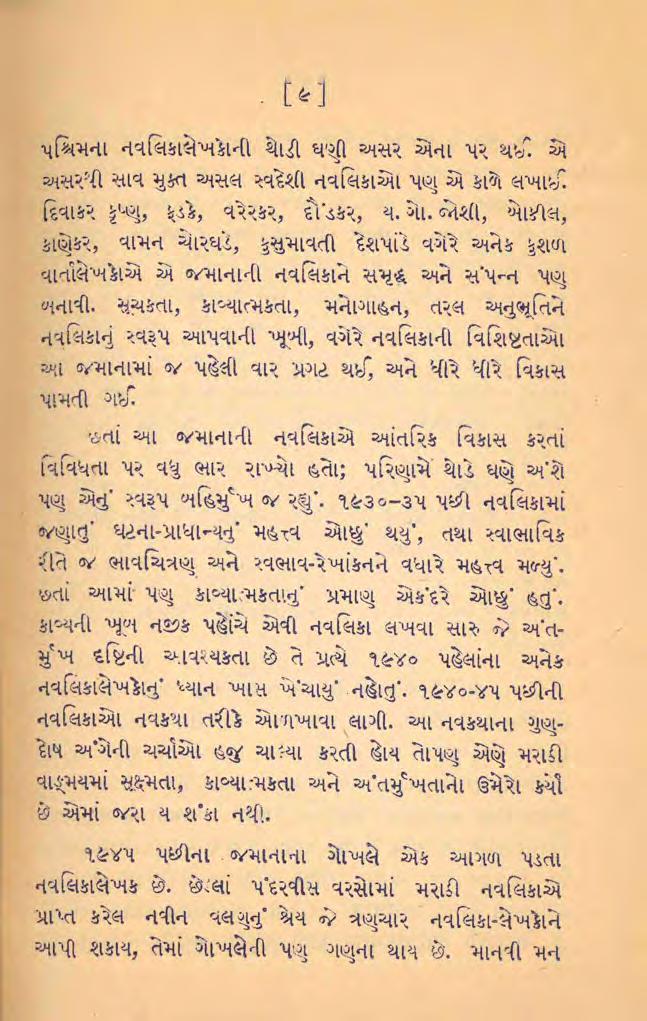 [૯]
પશ્ચિમના નવલિકાલેખકોની થોડી ઘણી અસર એના પર થઈ. એ
અસરથી સાવ મુક્ત અસલ સ્વદેશી નવલિકાઓ પણ એ કાળે લખાઈ.
દિવાકર કૃષ્ણ, ફડકે, વરેરકર, દૌંડકર, ય. ગો. જોશી, ઓકીલ,
કાણેકર, વામન ચોરઘડે, કુસુમાવતી દેશપાંડે વગેરે અનેક કુશળ
વાર્તાલેખકોએ એ જમાનાની નવલિકાને સમૃદ્ધ અને સંપન્ન પણ
બનાવી. સૂચકતા, કાવ્યાત્મકતા, મનોગાહન, તરલ અનુભૂતિને
નવલિકાનું સ્વરૂપ આપવાની ખૂબી, વગેરે નવલિકાની વિશિષ્ટતાઓ
આ જમાનામાં જ પહેલી વાર પ્રગટ થઈ, અને ધીરે ધીરે વિકાસ
પામતી ગઈ.
છતાં આ જમાનાની નવલિકાએ આંતરિક વિકાસ કરતાં
વિવિધતા પર વધુ ભાર રાખ્યો હતો; પરિણામે થોડે ઘણે અંશે
પણ એનું સ્વરૂપ બહિર્મુખ જ રહ્યું. ૧૯૩૦–૩૫ પછી નવલિકામાં
જણાતું ઘટના-પ્રાધાન્યનું મહત્ત્વ ઓછું થયું, તથા સ્વાભાવિક
રીતે જ ભાવચિત્રણ અને સ્વભાવ-રેખાંકનને વધારે મહત્ત્વ મળ્યું.
છતાં આમાં પણ કાવ્યાત્મકતાનું પ્રમાણ એકંદરે ઓછું હતું.
કાવ્યની ખૂબ નજીક પહોંચે એવી નવલિકા લખવા સારુ જે અંત-
ર્મુખ દૃષ્ટિની આવશ્યકતા છે તે પ્રત્યે ૧૯૪૦ પહેલાંના અનેક
નવલિકાલેખકોનું ધ્યાન ખાસ ખેંચાયું નહોતું. ૧૯૪૦-૪૫ પછીની
નવલિકાઓ નવકથા તરીકે ઓળખાવા લાગી. આ નવકથાના ગુણ-
દોષ અંગેની ચર્ચાઓ હજુ ચાલ્યા કરતી હોય તોપણ એણે મરાઠી
વાઙ્મયમાં સૂક્ષ્મતા, કાવ્યાત્મકતા અને અંતર્મુખતાનો ઉમેરો કર્યો
છે એમાં જરા ય શંકા નથી.
૧૯૪૫ પછીના જમાનાના ગોખલે એક આગળ પડતા
નવલિકાલેખક છે. છેલ્લાં પંદરવીસ વરસોમાં મરાઠી નવલિકાએ
પ્રાપ્ત કરેલ નવીન વલણનું શ્રેય જે ત્રણચાર નવલિકા-લેખકોને
આપી શકાય, તેમાં ગોખલેની પણ ગણના થાય છે. માનવી મન